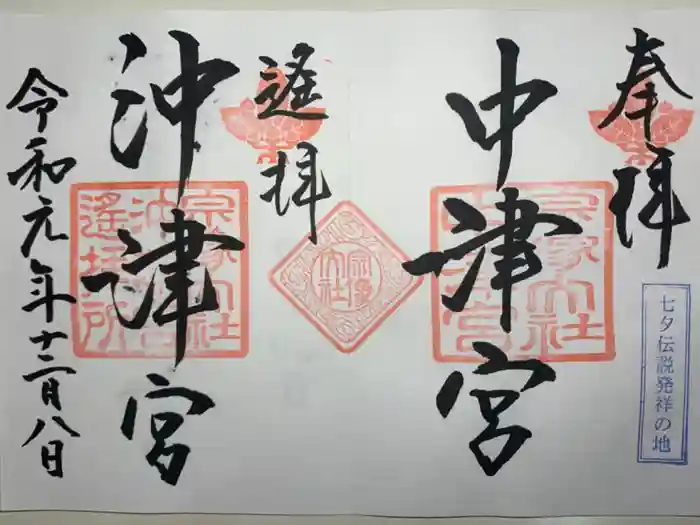 奉拝
中津宮
七夕伝説発祥の地
宗像大社
中津宮
宗像大社
遥拝
沖津宮
宗像大社
沖津宮
遙拝所
令和元年十二月八日